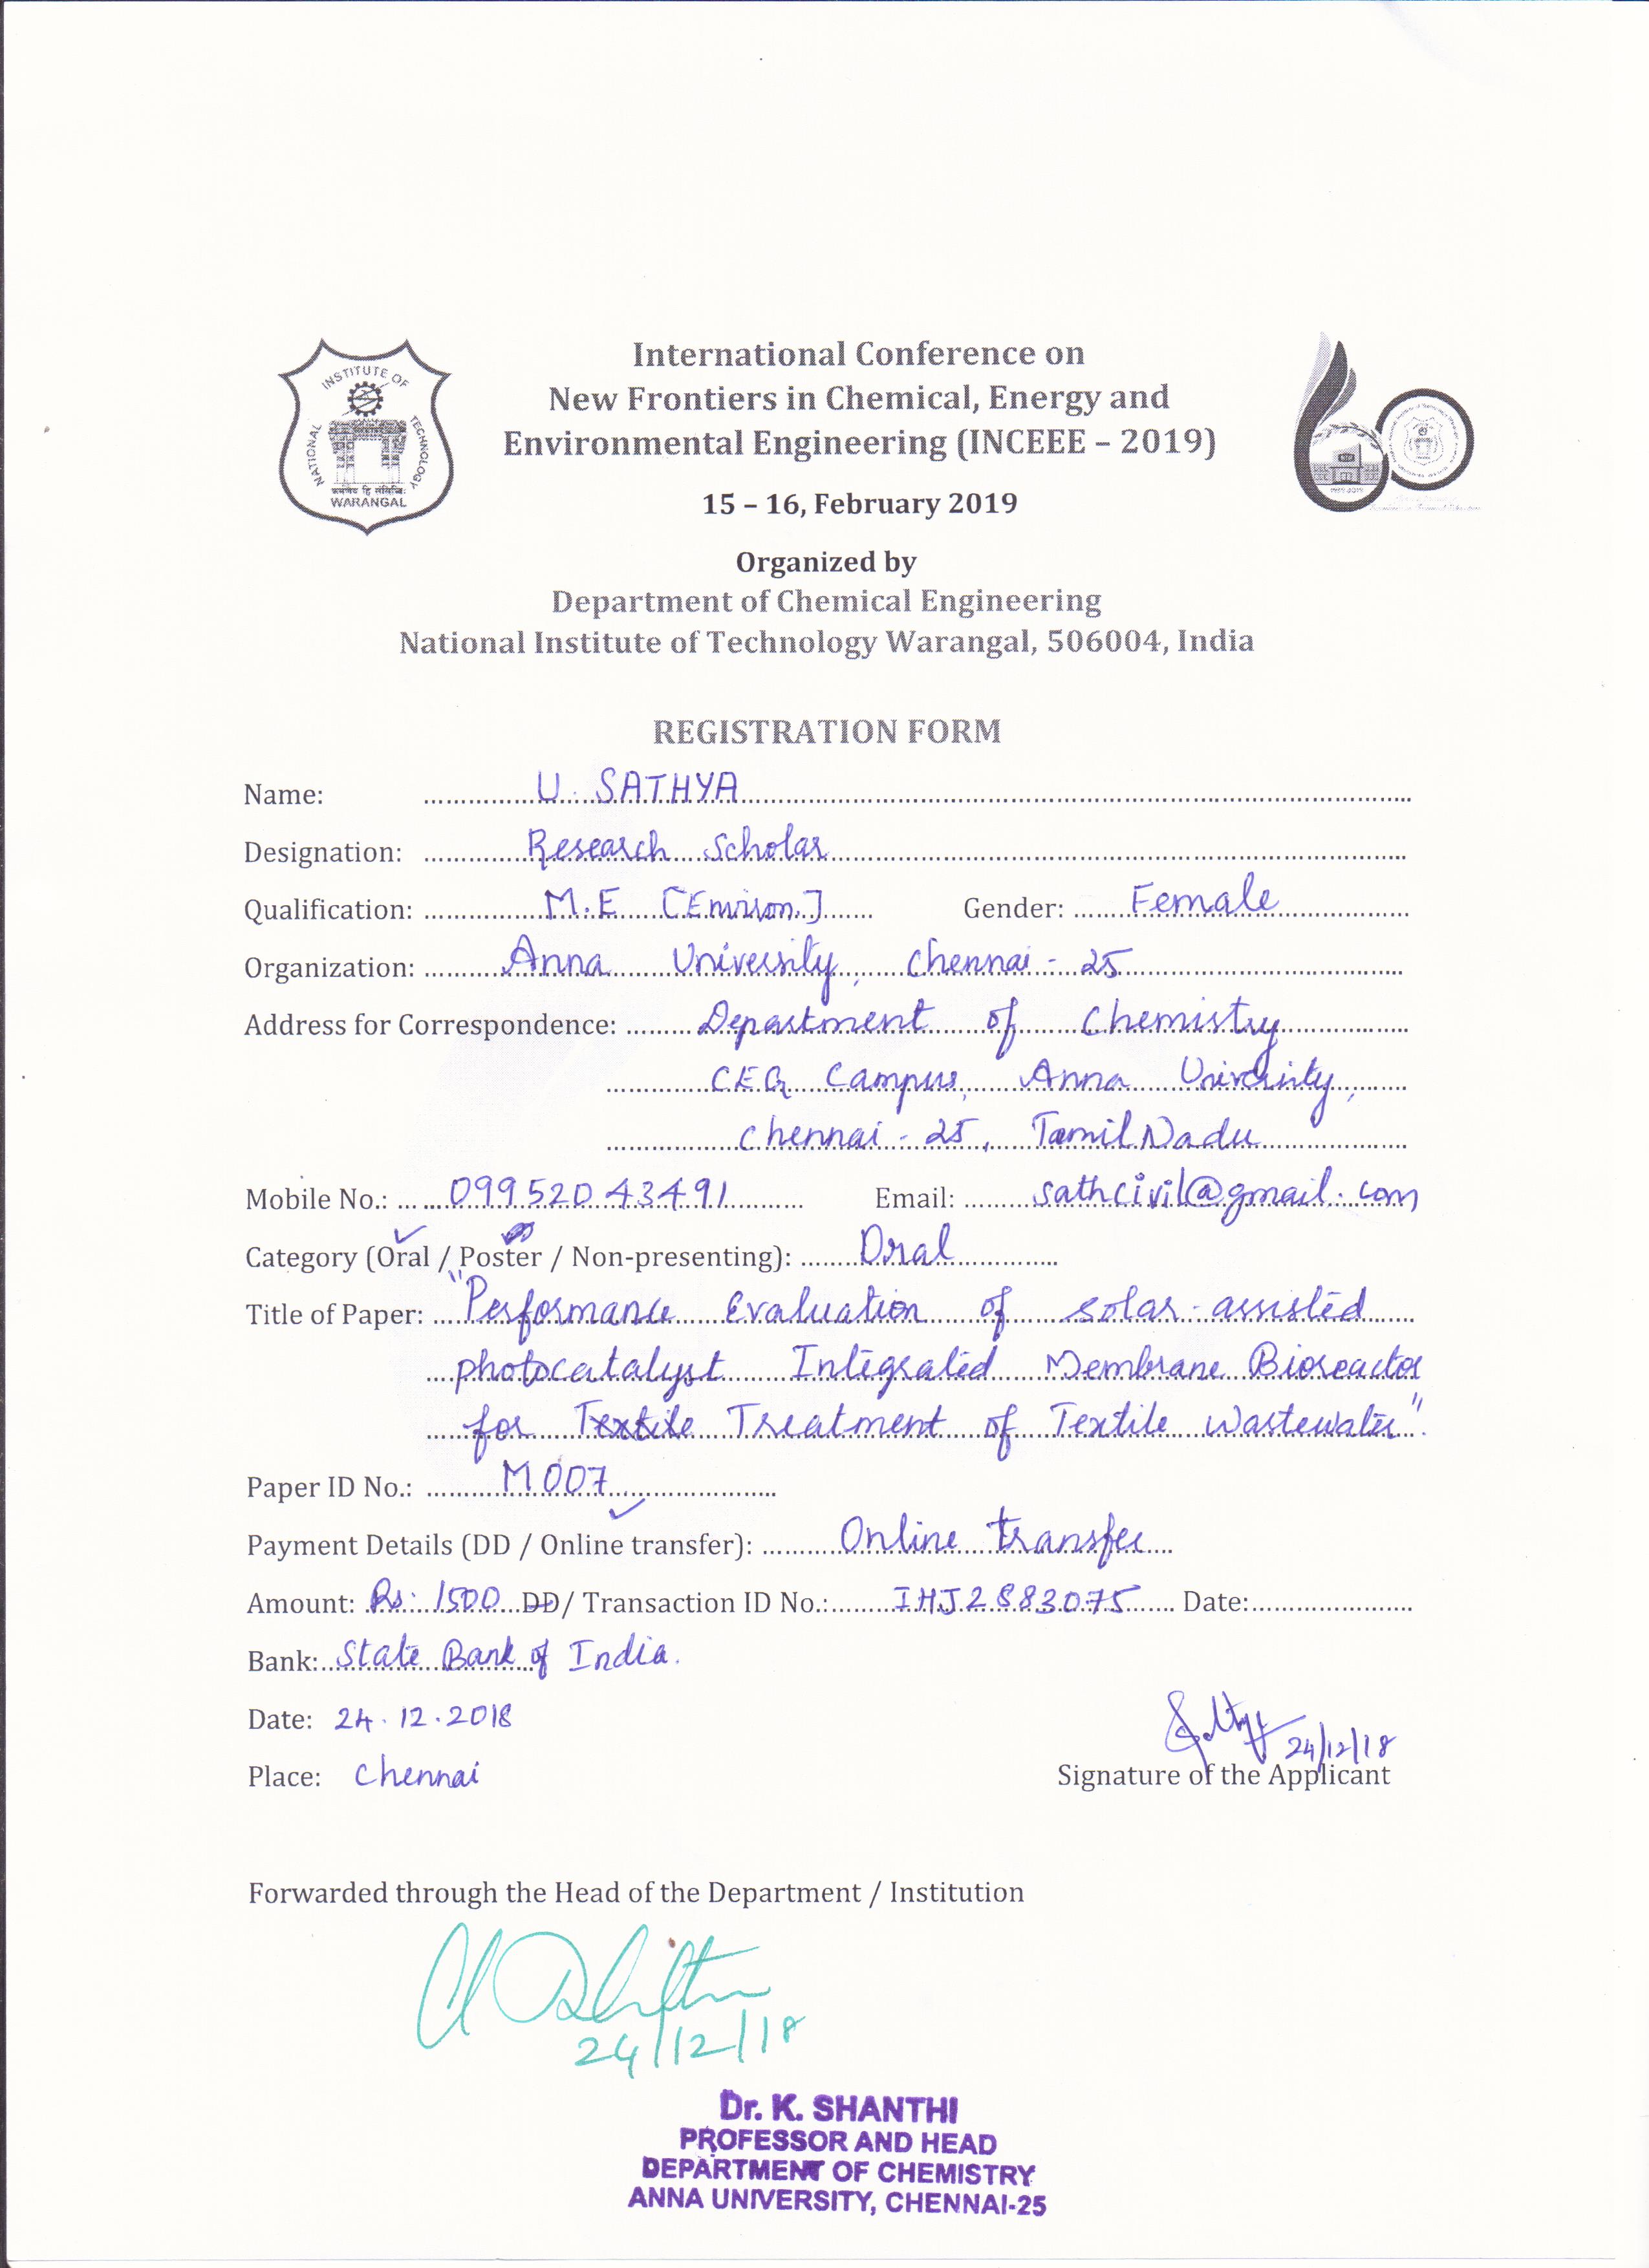 International Conference on
New Frontiers in Chemical, Energy and
Environmental Engineering (INCEEE – 2019)
15 – 16, February 2019
NATIONAL INSTITUTE OF TECHNOLOGY
WARANGAL
Organized by
Department of Chemical Engineering
National Institute of Technology Warangal, 506004, India
REGISTRATION FORM
Name: U. SATHYA
Designation: Research Scholar
Qualification: M.E [Environ.] Gender: Female
Organization: Anna University, Chennai - 25
Address for Correspondence: Department of Chemistry
CEG Campus, Anna University,
Chennai - 25, TamilNadu
Mobile No.: 09952043491 Email: sathcivil@gmail.com
Category (Oral / Poster / Non-presenting): Oral
Title of Paper: "Performance Evaluation of solar-assisted
photocatalyst Integrated Membrane Bioreactor
for Textile Treatment of Textile Wastewater".
Paper ID No.: M007
Payment Details (DD / Online transfer): Online transfer
Amount: Rs. 1500 DD/ Transaction ID No.: IHJ2883075 Date:
Bank: State Bank of India.
Date: 24.12.2018
24/12/18
Place: Chennai
Signature of the Applicant
Forwarded through the Head of the Department / Institution
24/12/18
Dr. K. SHANTHI
PROFESSOR AND HEAD
DEPARTMENT OF CHEMISTRY
ANNA UNIVERSITY, CHENNAI-25